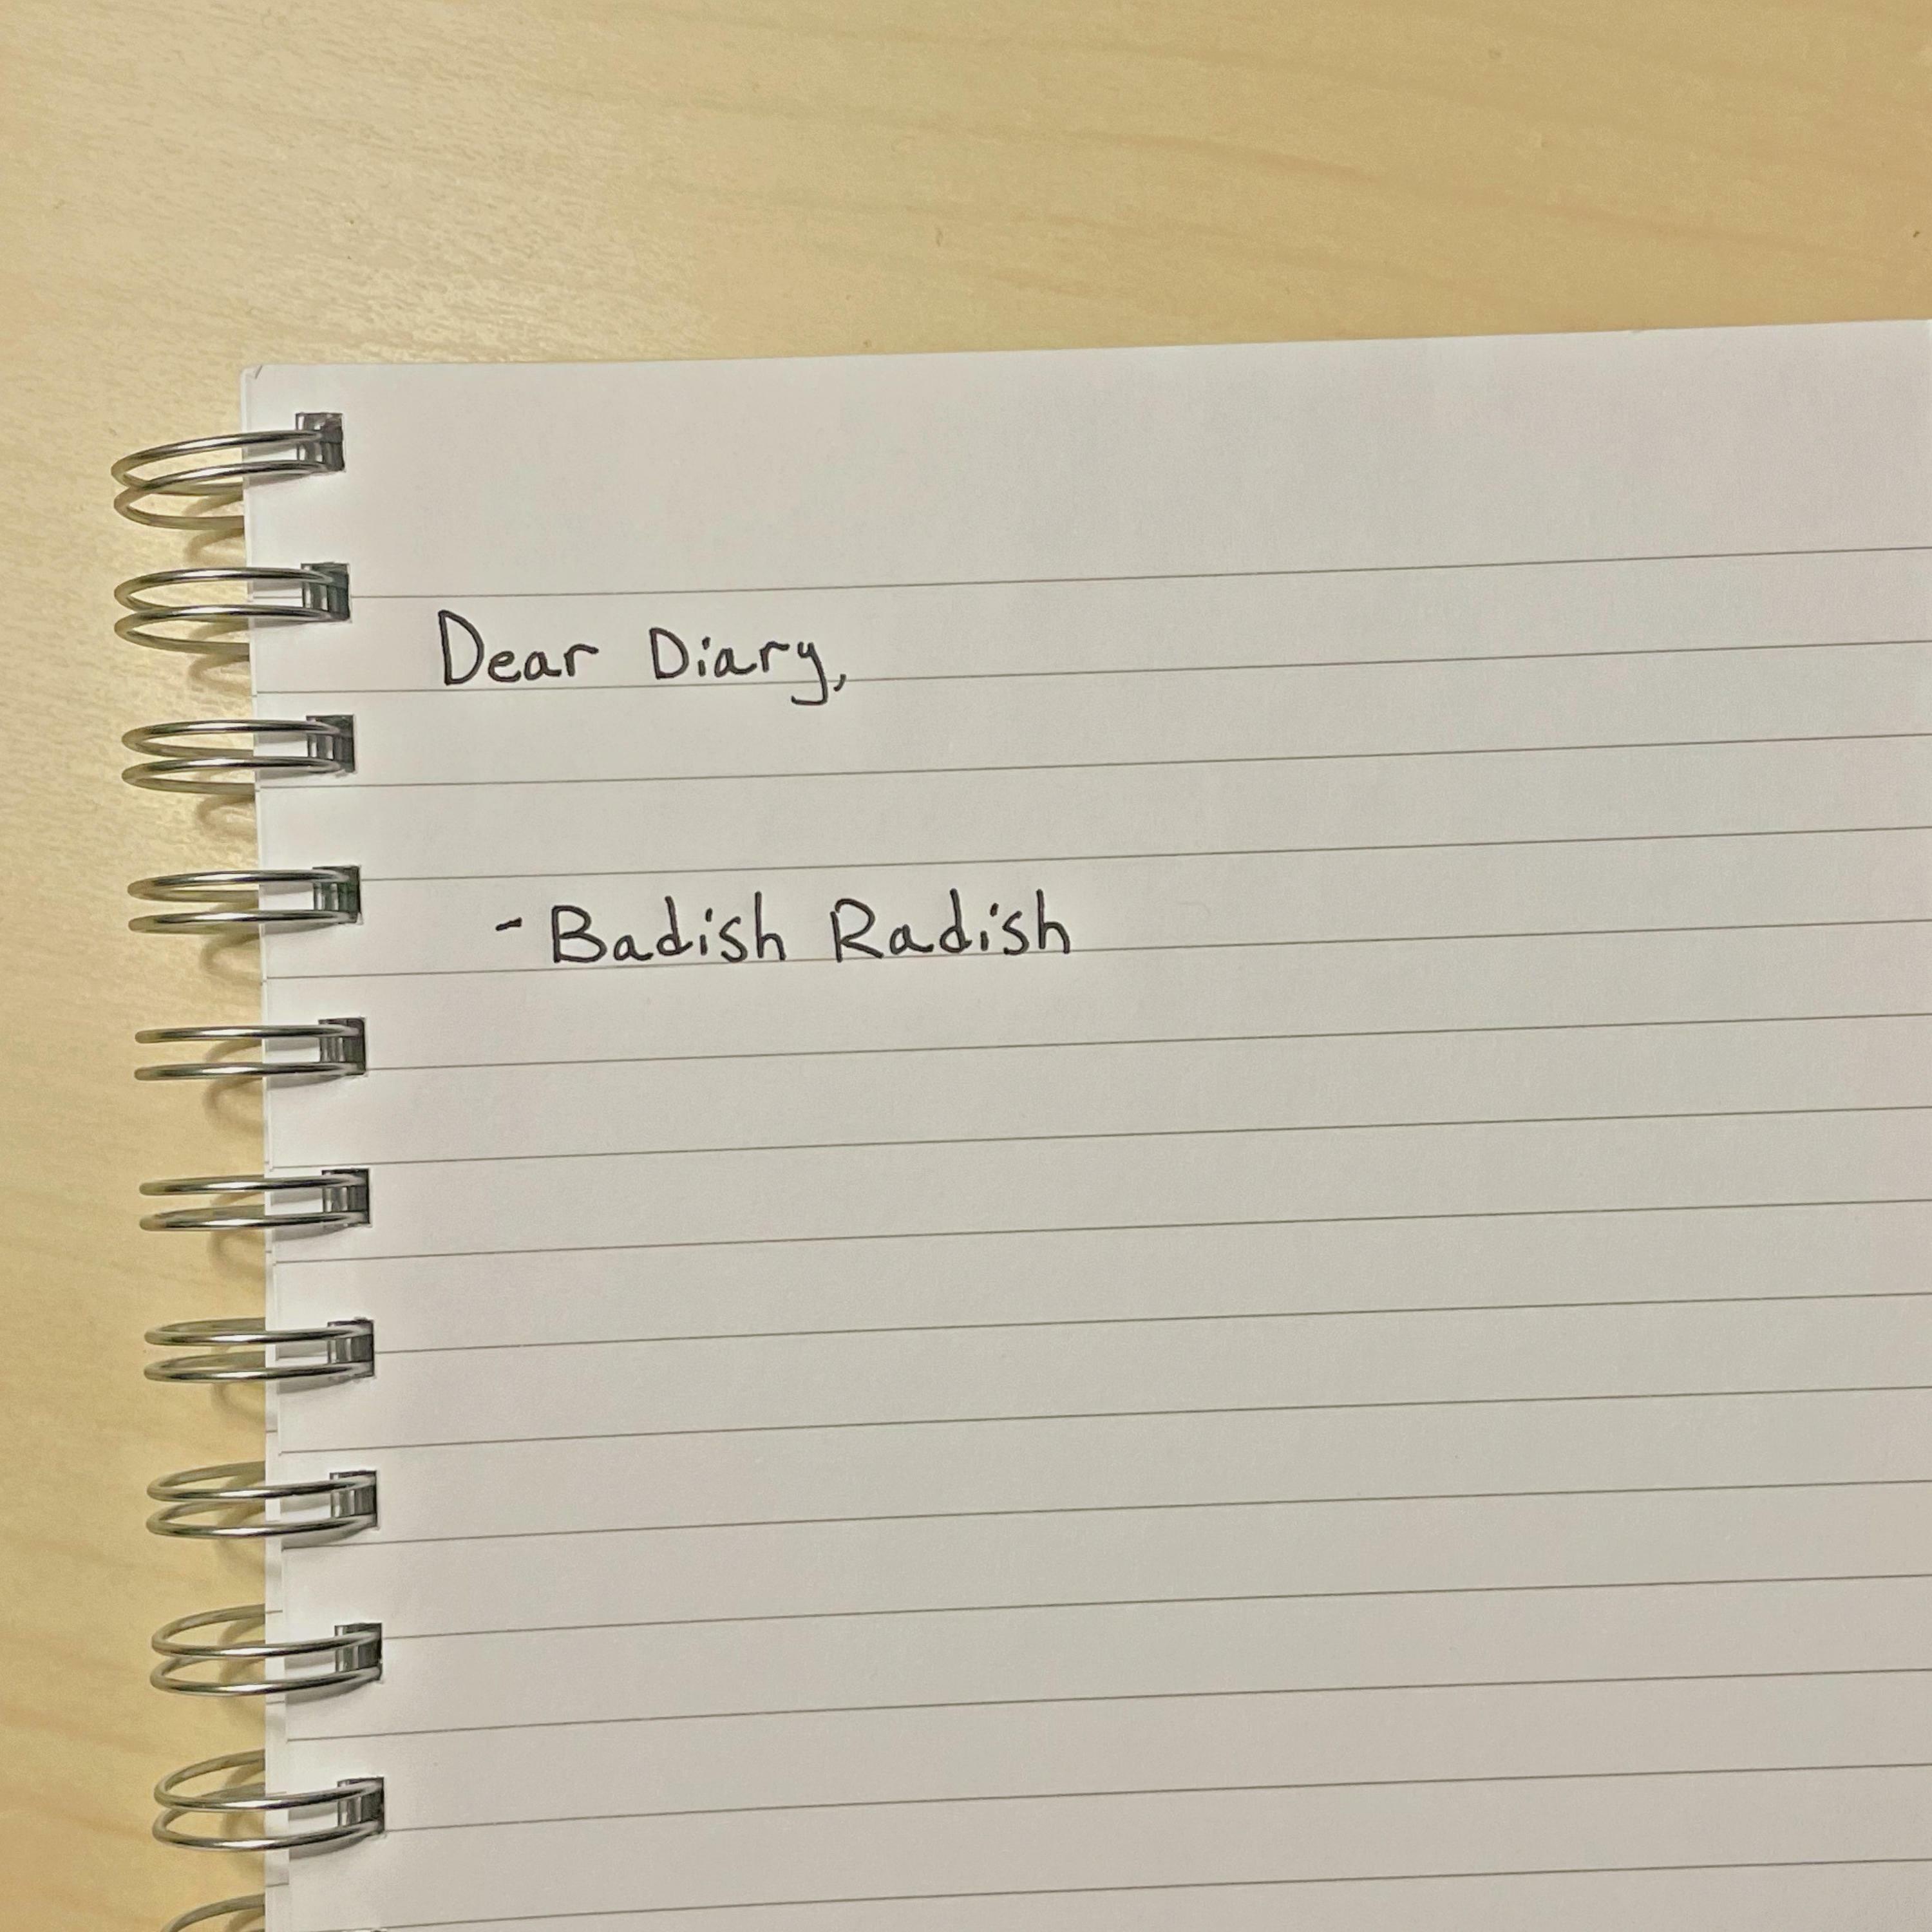 Dear Diary,
- Badish Radish